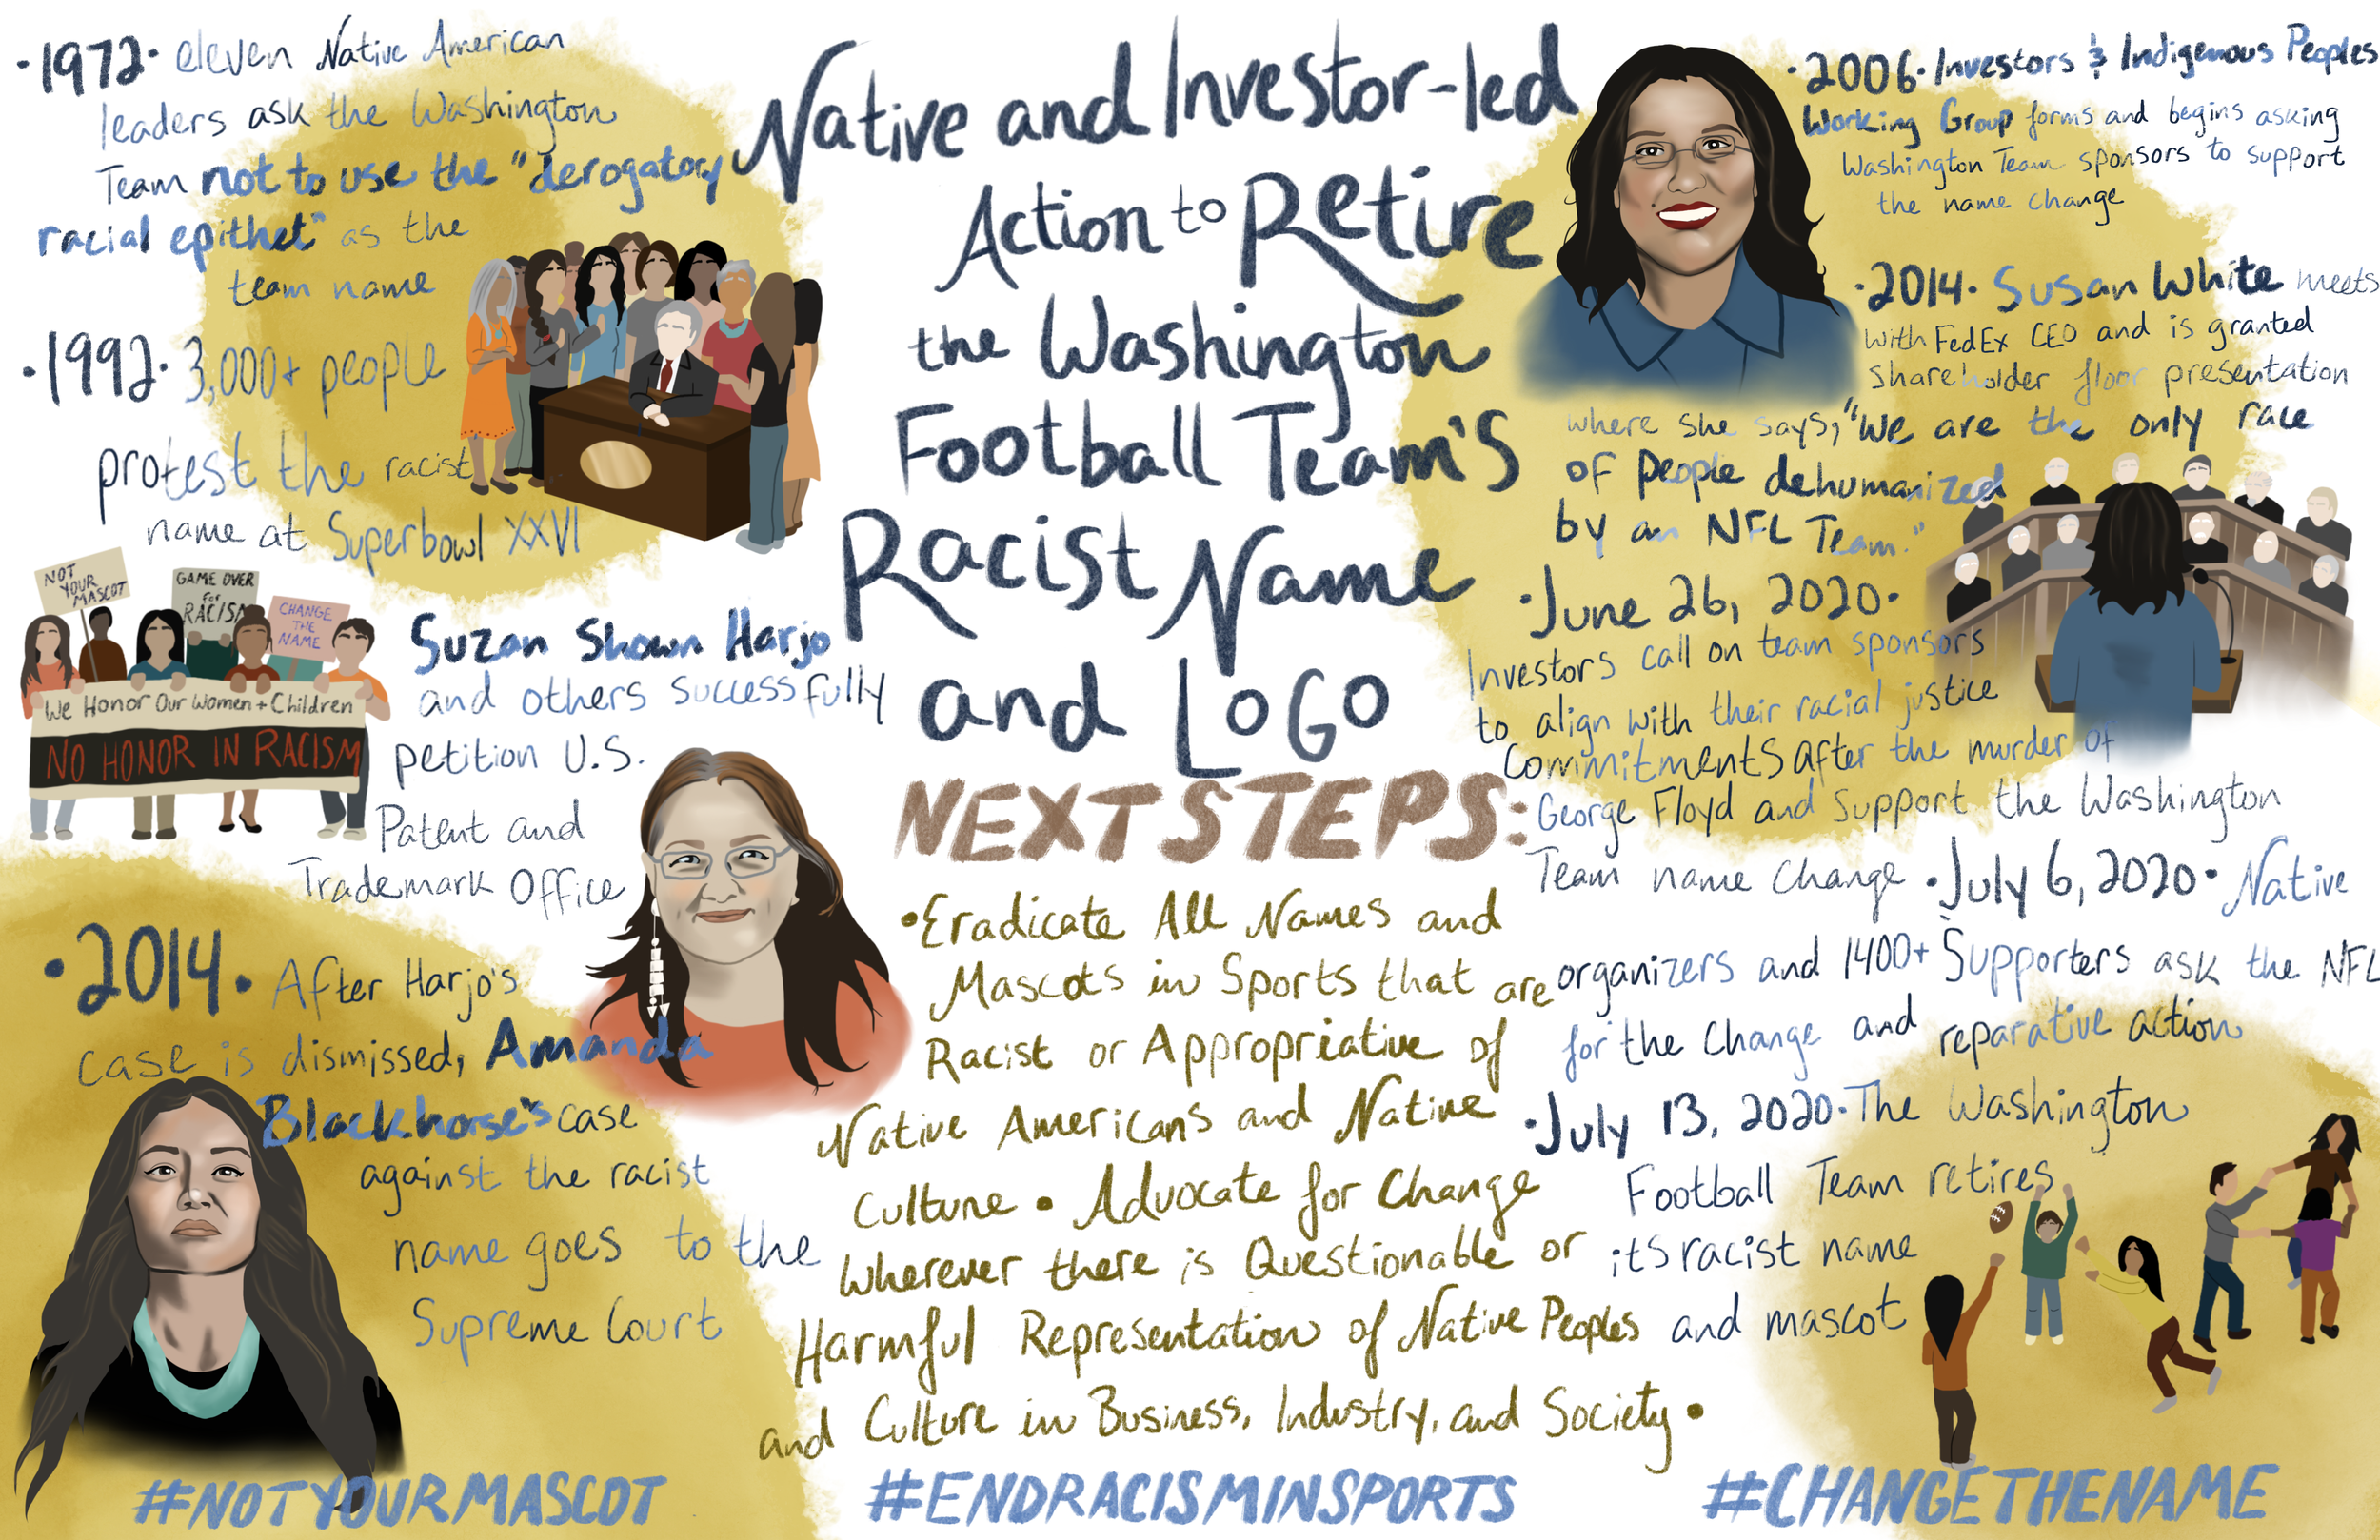 Native and Investor-led
Action to Retire
the Washington
Football Team's
Racist Name
and Logo
•1972• eleven Native American
leaders ask the Washington
Team not to use the "derogatory
racial epithet" as the
team name
•1992• 3,000+ people
protest the racist
name at Superbowl XXVI
NOT
YOUR
MASCOT
GAME OVER
for
RACISM
CHANGE
THE
NAME
We Honor Our Women + Children
NO HONOR IN RACISM
Suzan Shown Harjo
and others successfully
petition U.S.
Patent and
Trademark Office
•2014• After Harjo's
case is dismissed, Amanda
Blackhorse's case
against the racist
name goes to the
Supreme Court
•2006• Investors & Indigenous Peoples
Working Group forms and begins asking
Washington Team sponsors to support
the name change
•2014• Susan White meets
with FedEx CEO and is granted
shareholder floor presentation
where she says, "We are the only race
of people dehumanized
by an NFL Team."
•June 26, 2020•
Investors call on team sponsors
to align with their racial justice
commitments after the murder of
George Floyd and support the Washington
Team name change •July 6, 2020• Native
organizers and 1400+ Supporters ask the NFL
for the change and reparative action
•July 13, 2020• The Washington
Football Team retires
its racist name
and mascot
NEXT STEPS:
•Eradicate All Names and
Mascots in Sports that are
Racist or Appropriative of
Native Americans and Native
Culture • Advocate for Change
Wherever there is Questionable or
Harmful Representation of Native Peoples
and Culture in Business, Industry, and Society •
#NOTYOURMASCOT
#ENDRACISMINSPORTS
#CHANGETHENAME